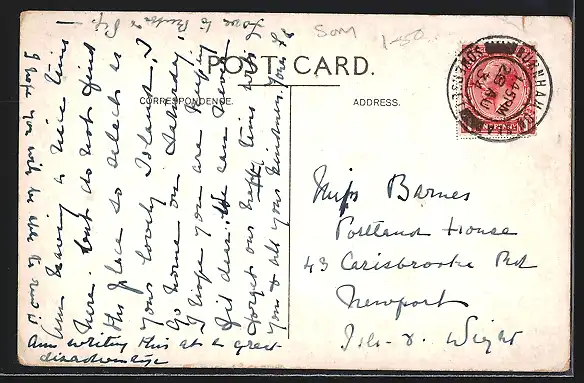 Som
1-50
POST CARD.
CORRESPONDENCE.
ADDRESS.
BURNHAM
AU
Miss Barnes
Portland House
43 Carisbrooke Rd
Newport
Isle - of - Wight
Am having a nice time
here. but do not find
this place so select as
your lovely Island. I
go home on Saturday
I hope you are keeping
fit dear. We can never
forget our happy times with
you & all your kindness. Yours
Love to
I hope you will be able to read it
am writing this at a great
disadvantage